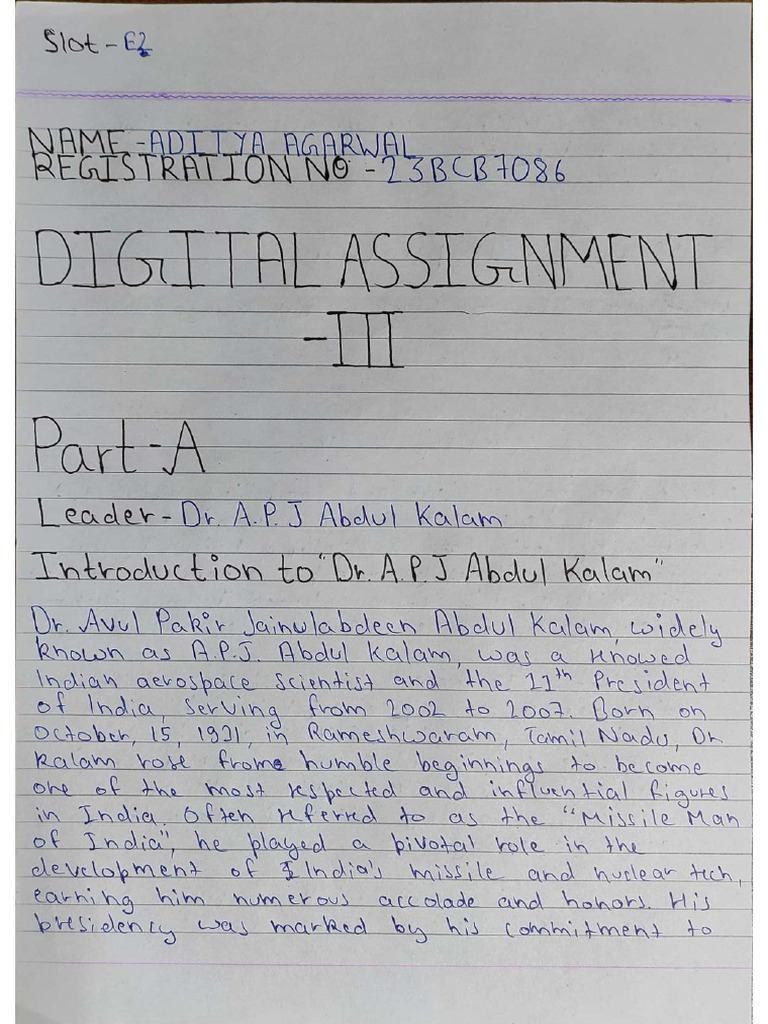 Slot - E2
NAME - ADITYA AGARWAL
REGISTRATION NO - 23BCB7086
DIGITAL ASSIGNMENT
- III
Part - A
Leader - Dr. A.P.J Abdul Kalam
Introduction to "Dr. A.P.J Abdul Kalam"
Dr. Avul Pakir Jainulabdeen Abdul Kalam, widely
known as A.P.J. Abdul Kalam, was a
Indian aerospace scientist and the 11th President
of India, serving from 2002 to 2007. Born on
October, 15, 1931, in Rameshwaram, Tamil Nadu, Dr.
Kalam rose from humble beginnings to become
one of the most respected and influential figures
in India. Often referred to as the "Missile Man
of India", he played a pivotal role in the
development of India's missile and nuclear tech,
earning him numerous accolade and honors. His
presidency was marked by his commitment to